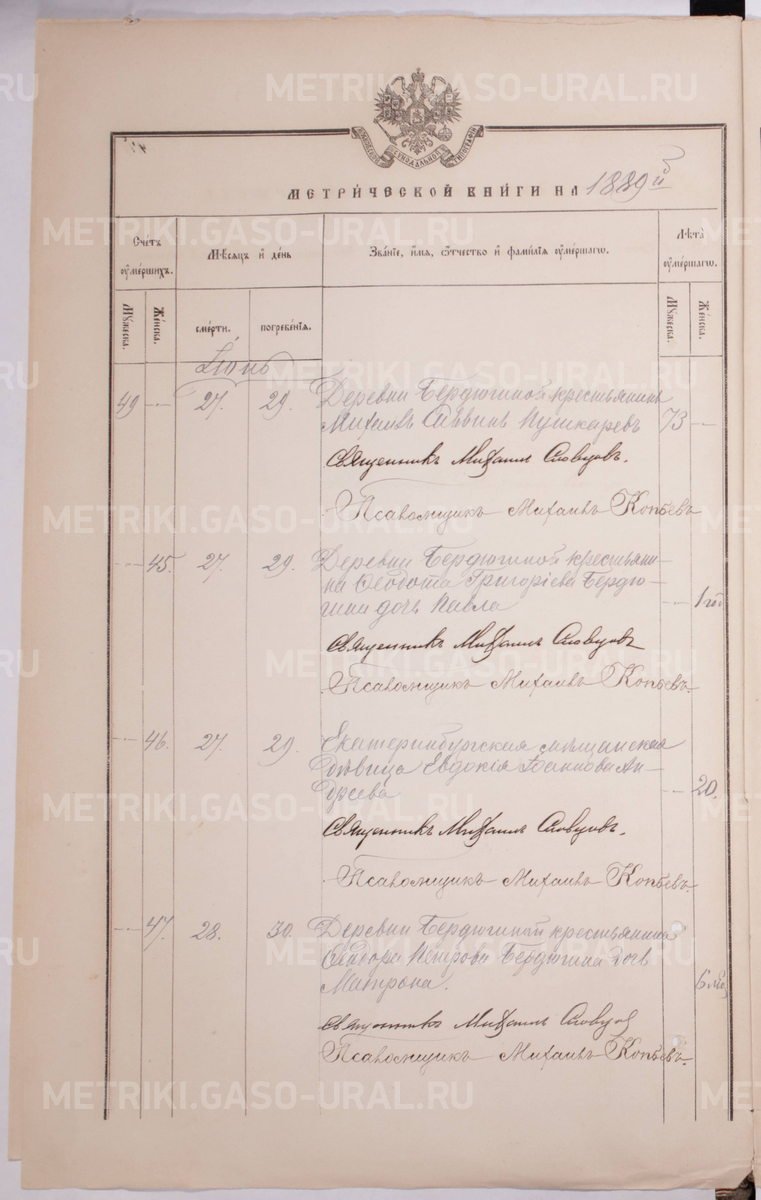 МЕТРИЧЕСКОЙ КНИГИ НА 1889й
Счетъ оумершихъ.
Мужеска.
Женска.
Мѣсяцъ и день
смерти.
погребенія.
Званіе, имя, отчество и фамилія оумершагω.
Лѣта оумершагω.
Мужеска.
Женска.
Іюнь
49 — 27. 29. Деревни Бердюгиной крестьянинъ
Михаилъ Саввинъ Пушкаревъ 73 —
Священникъ Михаилъ Словцовъ.
Псаломщикъ Михаилъ Копьевъ
— 45. 27. 29. Деревни Бердюгиной крестьяни-
на Григоріева Бердю-
гина дочь Павла — 1 год
Священникъ Михаилъ Словцовъ
Псаломщикъ Михаилъ Копьевъ.
— 46. 27. 29. Екатеринбургская мѣщанская
дѣвица Евдокія Іоаннова Ан-
— 20.
Священникъ Михаилъ Словцовъ.
Псаломщикъ Михаилъ Копьевъ.
— 47. 28. 30. Деревни Бердюгиной крестьянина
Петрова Бердюгина дочь
Матрона. 6 мѣс
Священникъ Михаилъ Словцов
Псаломщикъ Михаилъ Копьевъ.
METRIKI.GASO-URAL.RU